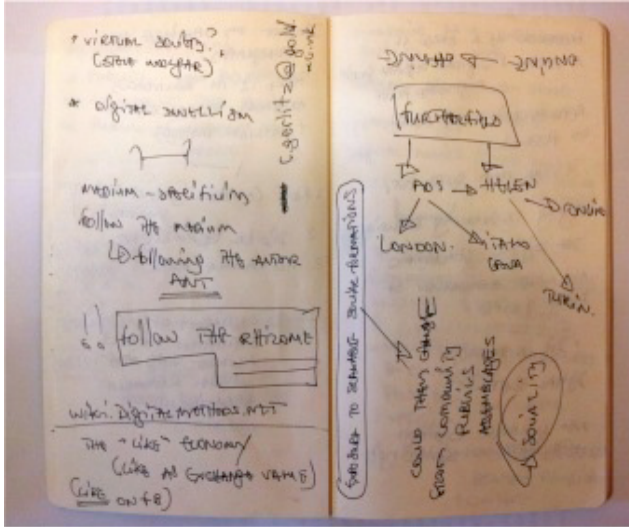 * VIRTUAL
(STEVE WOOLGAR)
* DIGITAL DUALLISM
MEDIUM-SPECIFICITY
follow THE MEDIUM
following THE ACTOR
ANT
!! follow THE RHIZOME
WIKI.DIGITALMETHODS.NET
THE "LIKE" ECONOMY
(LIKE AS EXCHANGE VALUE)
(LIKE ON FB)
c.gerlitz@gold.
ac.uk
ONLINE → OFFLINE
FURTHERFIELD
ADS → HELEN
ONLINE
LONDON.
TURIN.
TO SOCIAL FORMATIONS
COULD THEM CHANGE
FROM COMMUNITY
PUBLICS
ASSEMBLAGES
SOCIALITY